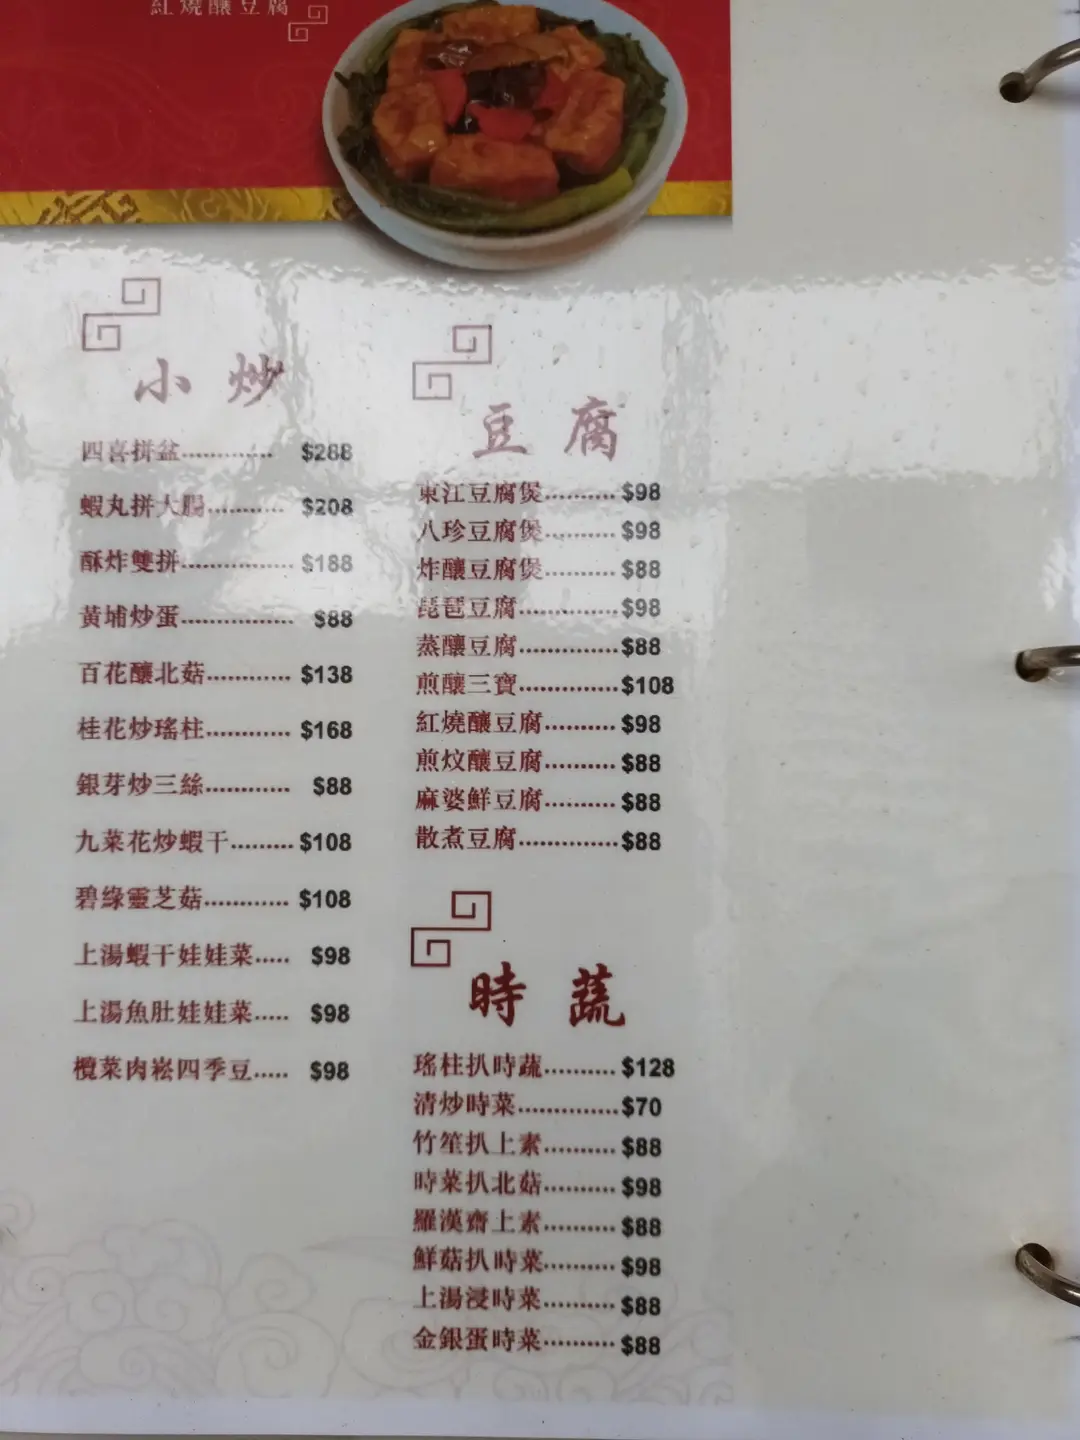 紅燒釀豆腐
小炒
四喜拼盆............. $288
蝦丸拼大腸........... $208
酥炸雙拼................ $188
黃埔炒蛋................ $88
百花釀北菇............ $138
桂花炒瑤柱............ $168
銀芽炒三絲............ $88
九菜花炒蝦干......... $108
碧綠靈芝菇............ $108
上湯蝦干娃娃菜..... $98
上湯魚肚娃娃菜..... $98
欖菜肉崧四季豆..... $98
豆腐
東江豆腐煲..........$98
八珍豆腐煲..........$98
炸釀豆腐煲..........$88
琵琶豆腐..............$98
蒸釀豆腐..............$88
煎釀三寶..............$108
紅燒釀豆腐..........$98
煎炆釀豆腐..........$88
麻婆鮮豆腐..........$88
散煮豆腐..............$88
時蔬
瑤柱扒時蔬..........$128
清炒時菜..............$70
竹笙扒上素..........$88
時菜扒北菇..........$98
羅漢齋上素..........$88
鮮菇扒時菜..........$98
上湯浸時菜..........$88
金銀蛋時菜..........$88